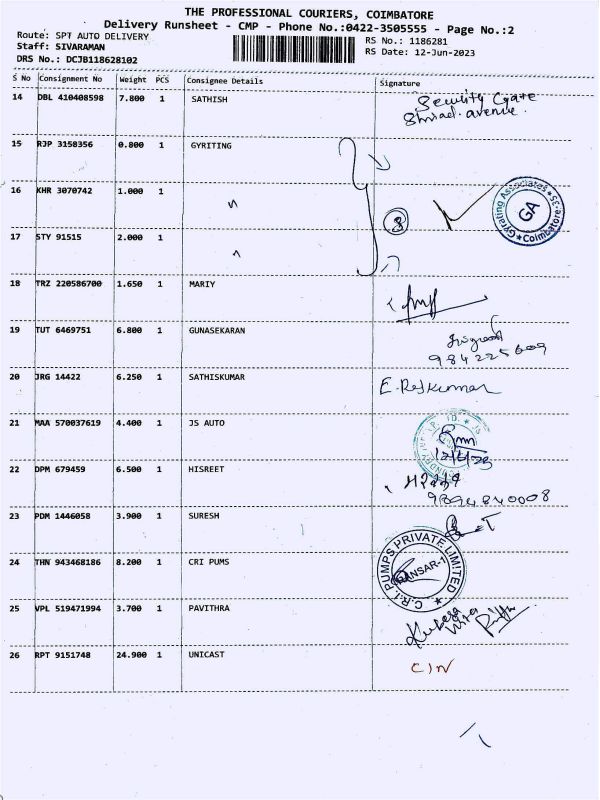 THE PROFESSIONAL COURIERS, COIMBATORE
Delivery Runsheet - CMP - Phone No.:0422-3505555 - Page No.:2
Route: SPT AUTO DELIVERY
RS No.: 1186281
Staff: SIVARAMAN
RS Date: 12-Jun-2023
DRS No.: DCJB118628102
S No Consignment No Weight PCS Consignee Details Signature
14 DBL 410408598 7.800 1 SATHISH Security Gate
avenue
15 RJP 3158356 0.800 1 GYRITING
16 KHR 3070742 1.000 1 "
Gyrating Associates ★ SE-ie ★ Coimbatore
GA
3
17 STY 91515 2.000 1 "
18 TRZ 220586700 1.650 1 MARIY
19 TUT 6469751 6.800 1 GUNASEKARAN
20 JRG 14422 6.250 1 SATHISKUMAR E. Rajkumar
21 MAA 570037619 4.400 1 JS AUTO
12/6/23
22 DPM 679459 6.500 1 HISREET
9894840008
23 PDM 1446058 3.900 1 SURESH
24 THN 943468186 8.200 1 CRI PUMS
C.R.I. PUMPS PRIVATE LIMITED ★
ANSAR-1
25 VPL 519471994 3.700 1 PAVITHRA
26 RPT 9151748 24.900 1 UNICAST